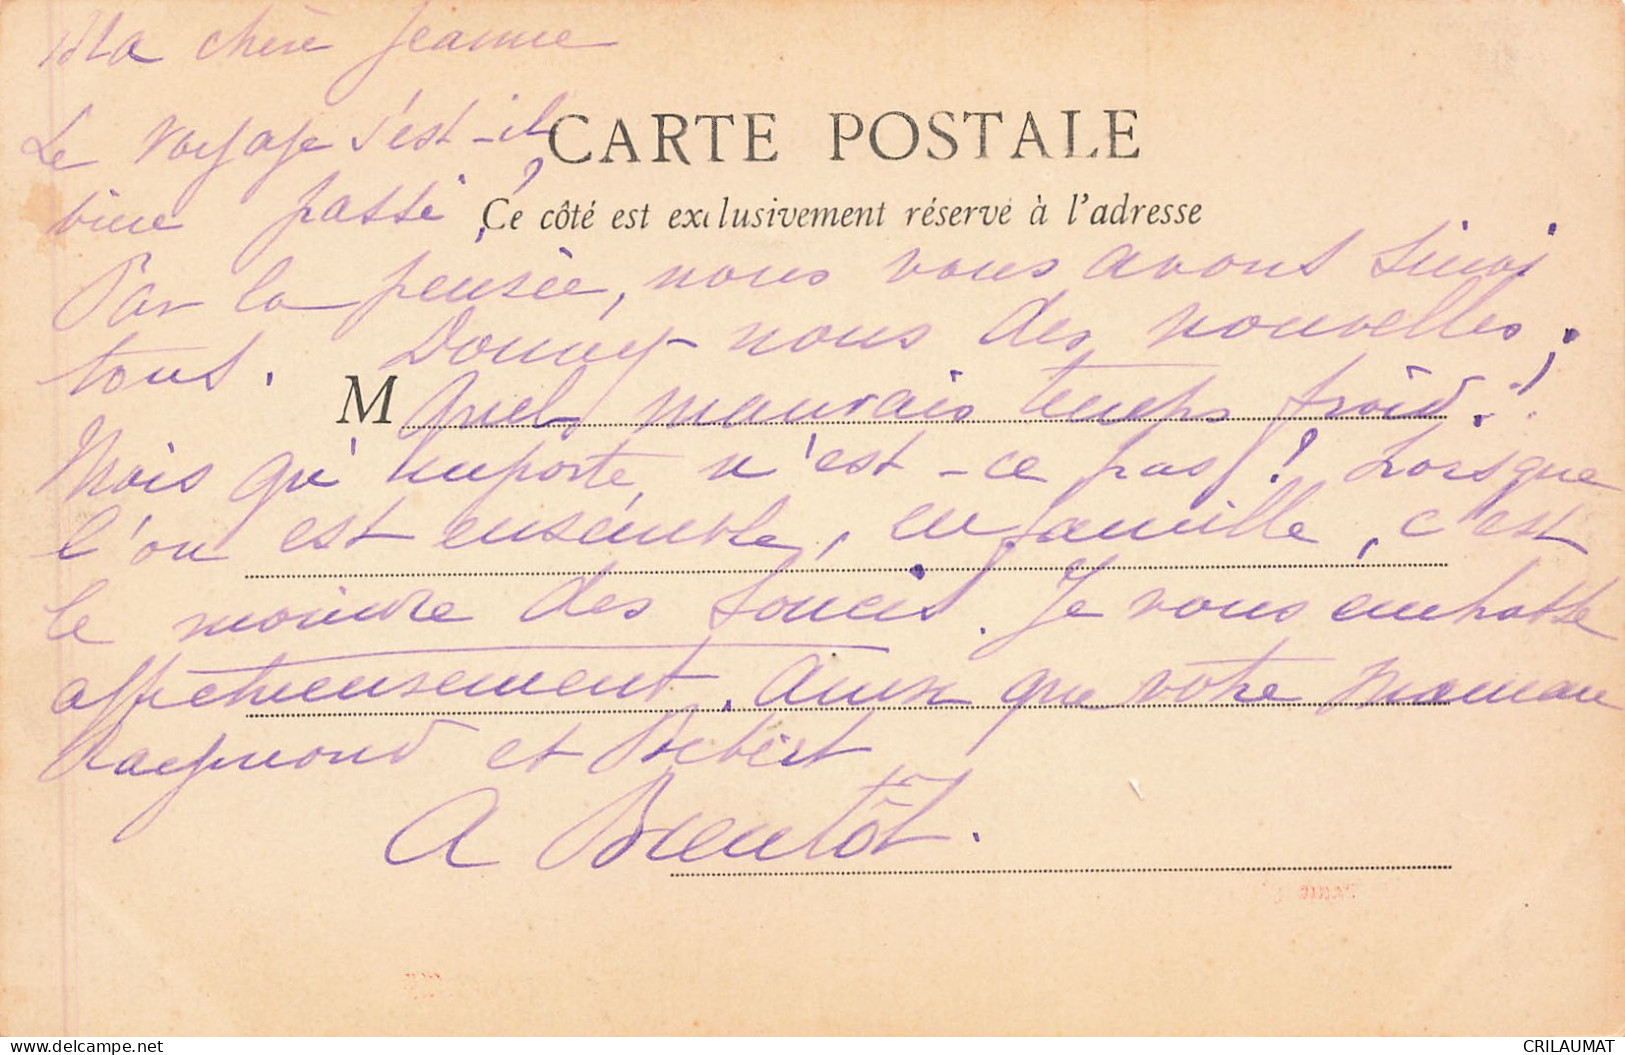 Ma chère Jeanne
Le voyage s'est-il
CARTE POSTALE
bien passé ?
Ce côté est exclusivement réservé à l'adresse
Par la pensée, nous vous avons suivi
tous. Donnez-nous des nouvelles.
M
Quel mauvais temps froid !
Mais qu'importe, n'est-ce pas ! Lorsque
l'on est ensemble, en famille, c'est
le moindre des soucis. Je vous embrasse
affectueusement. Ainsi que votre maman
Raymond et Bébert
A Bientôt.
www.delcampe.net
CRILAUMAT